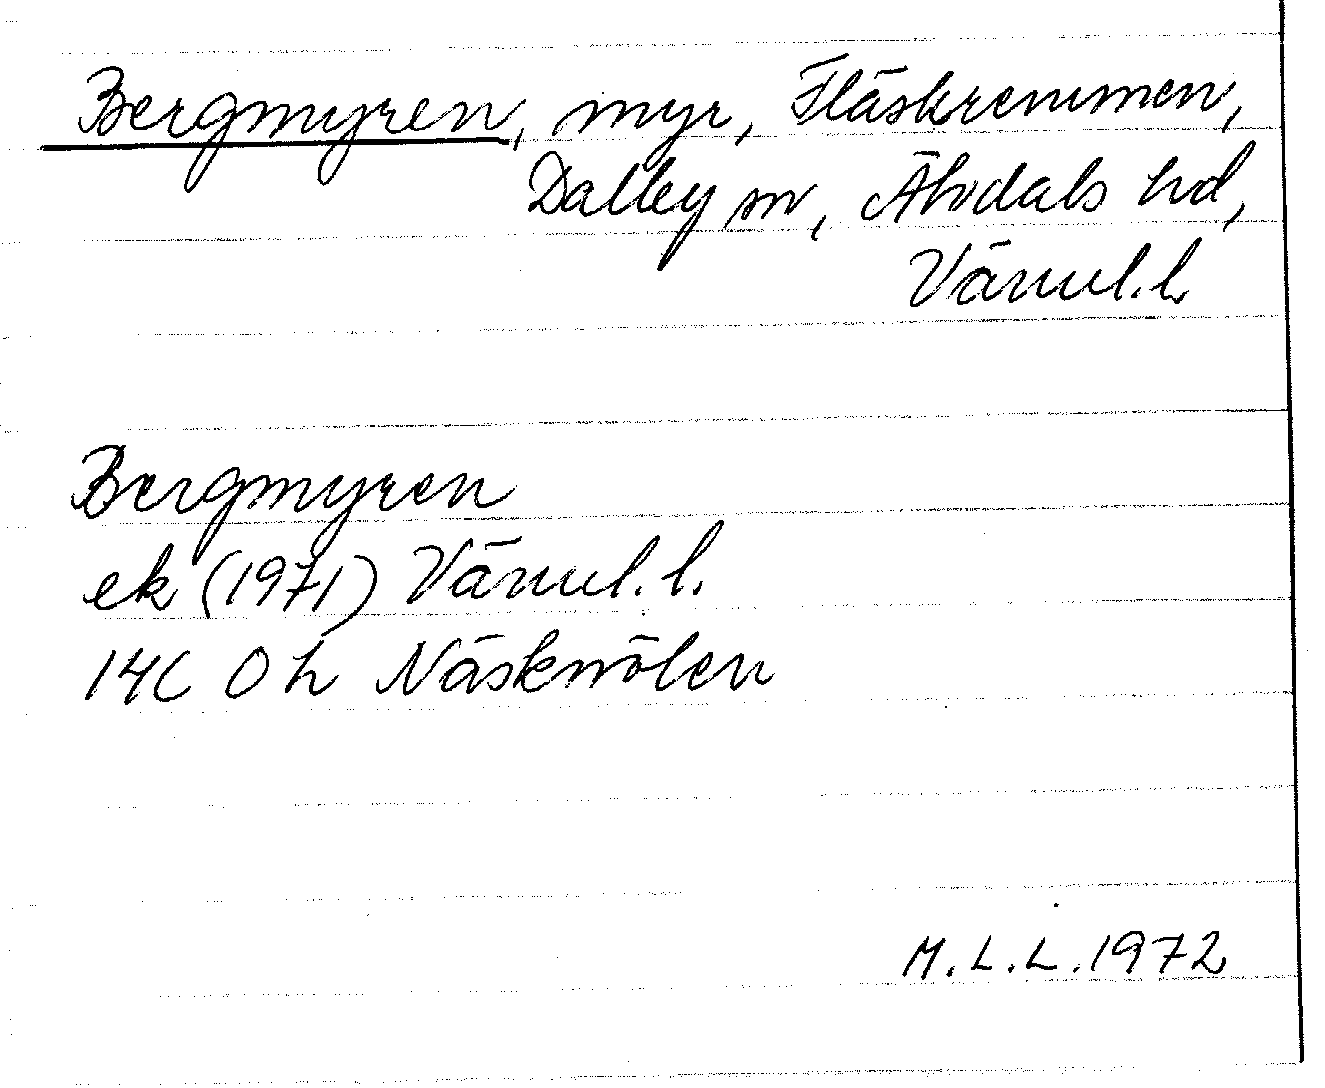 Bergmyren, myr, Fläskremmen,
Dalby sn, Älvdals hd,
Värml. l.
Bergmyren
ek (1971) Värml. l.
14C 0 h Näsknölen
M.L.L. 1972